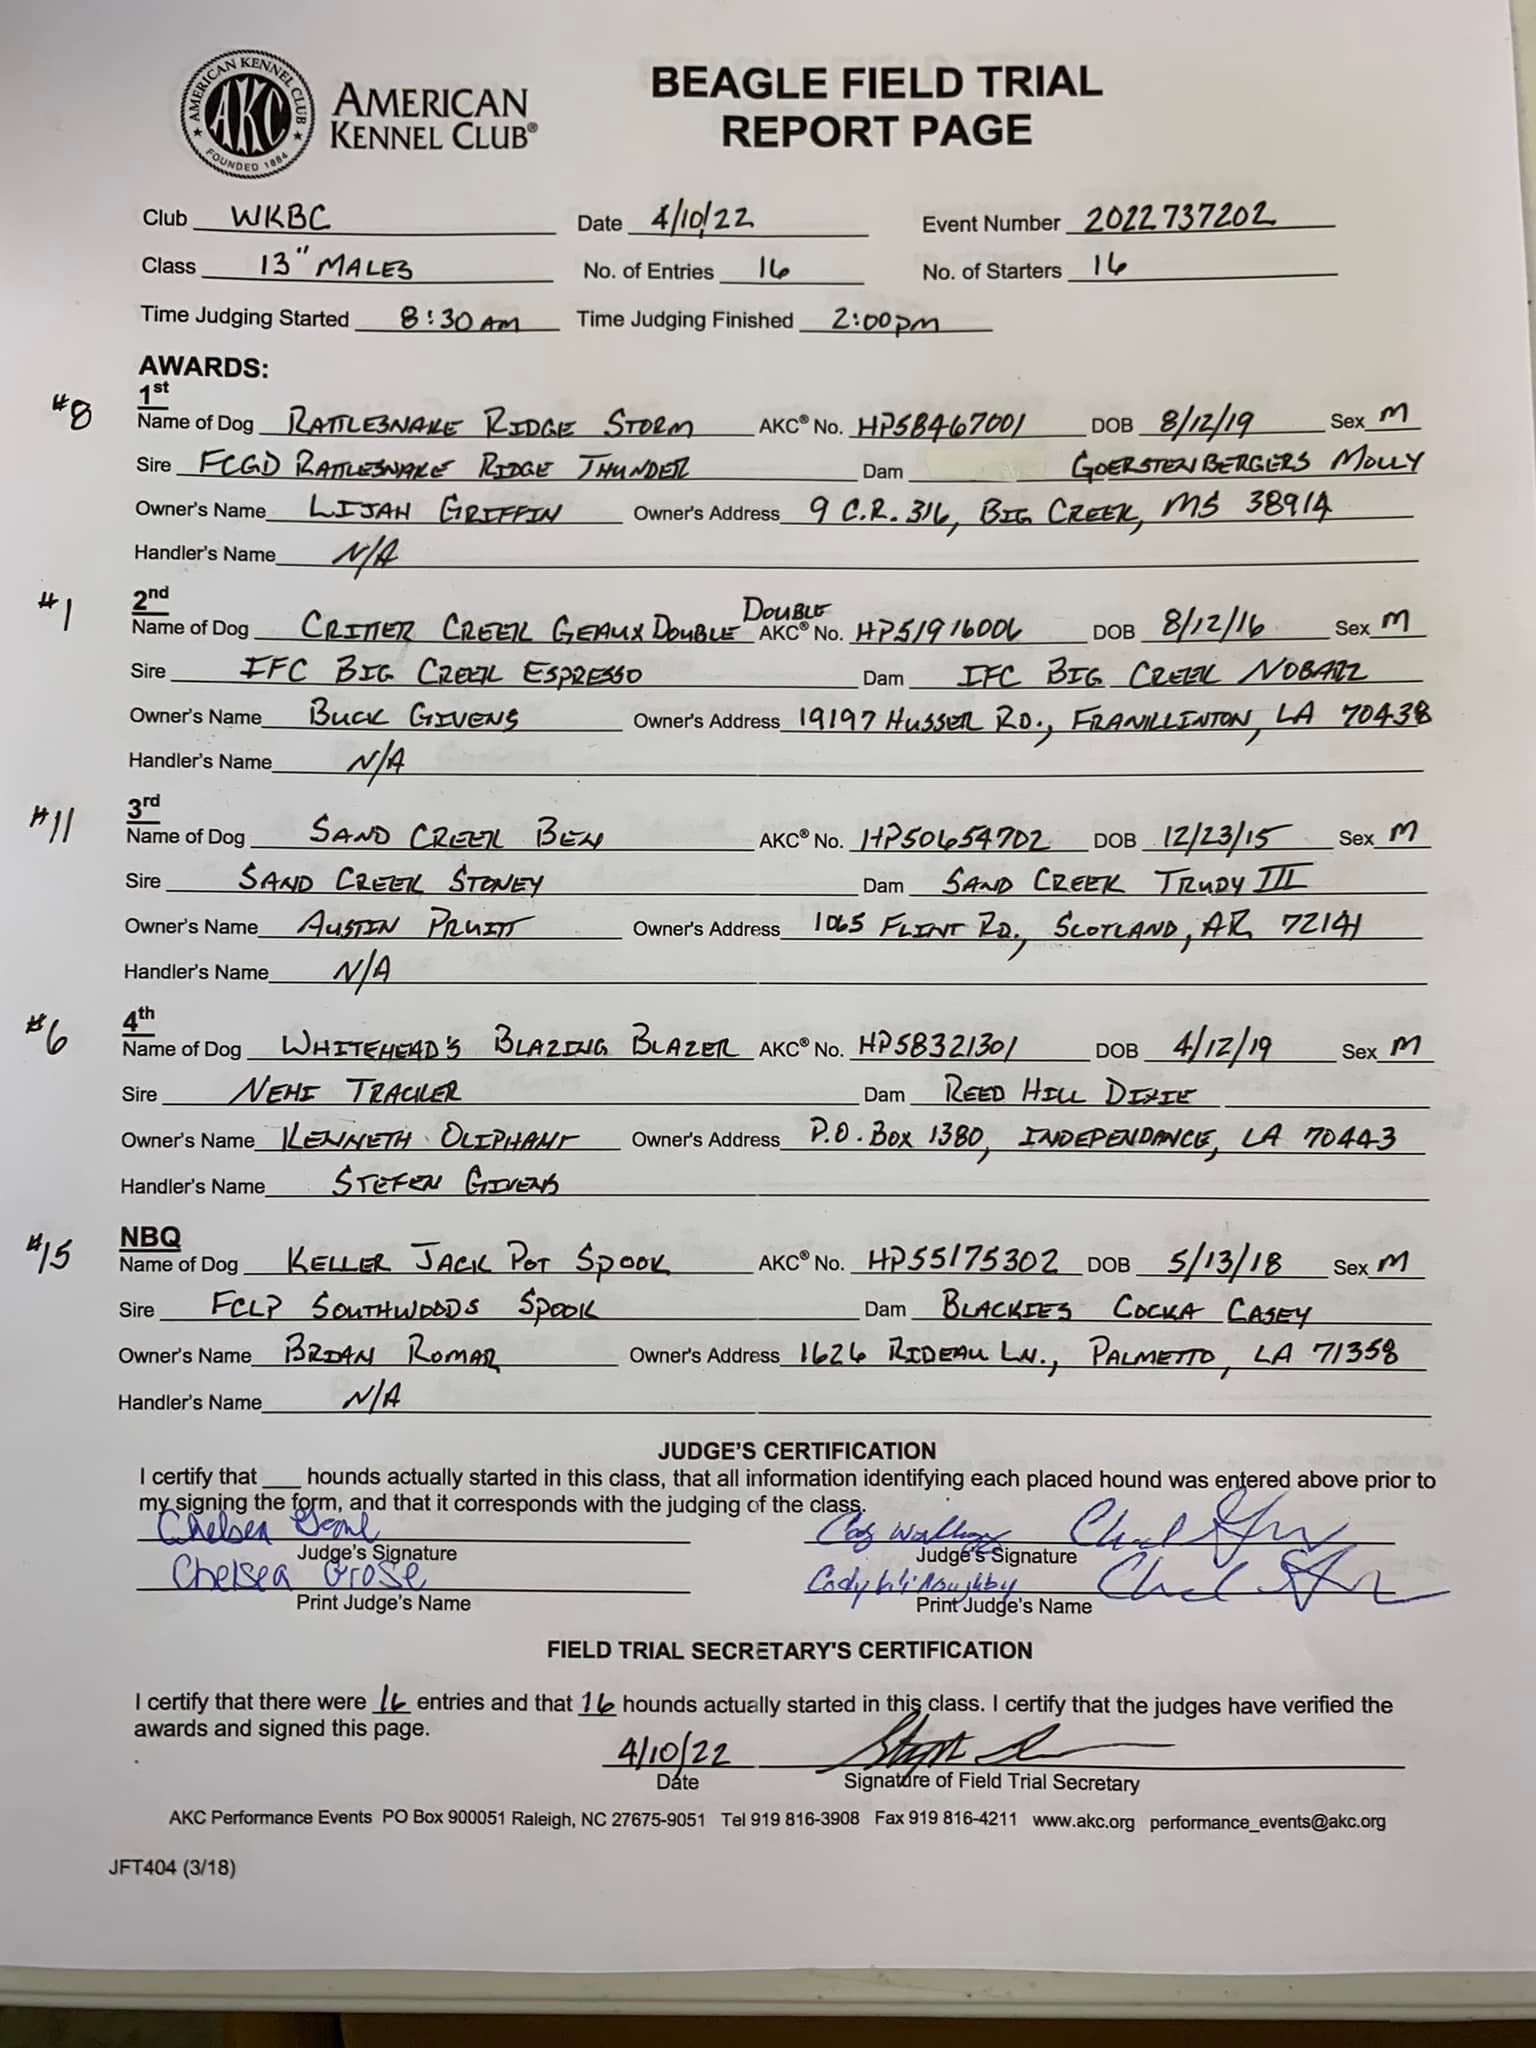 AMERICAN KENNEL CLUB
AKC
FOUNDED 1884
AMERICAN
KENNEL CLUB®
BEAGLE FIELD TRIAL
REPORT PAGE
Club WKBC Date 4/10/22 Event Number 2022737202
Class 13" MALES No. of Entries 16 No. of Starters 16
Time Judging Started 8:30 AM Time Judging Finished 2:00 pm
AWARDS:
#8 1st
Name of Dog RATTLESNAKE RIDGE STORM AKC® No. HP58467001 DOB 8/12/19 Sex M
Sire FCGD RATTLESNAKE RIDGE THUNDER Dam GOERSTENBERGERS MOLLY
Owner's Name LIJAH GRIFFIN Owner's Address 9 C.R. 316, BIG CREEK, MS 38914
Handler's Name N/A
#1 2nd
Name of Dog CRITTER CREEK GEAUX DOUBLE DOUBLE AKC® No. HP51916006 DOB 8/12/16 Sex M
Sire IFC BIG CREEK ESPRESSO Dam IFC BIG CREEK NOBAZZ
Owner's Name BUCK GIVENS Owner's Address 19197 HUSSER RD., FRANKLINTON, LA 70438
Handler's Name N/A
#11 3rd
Name of Dog SAND CREEK BEN AKC® No. HP50654702 DOB 12/23/15 Sex M
Sire SAND CREEK STONEY Dam SAND CREEK TRUDY III
Owner's Name AUSTIN PRUITT Owner's Address 1065 FLINT RD., SCOTLAND, AR 72141
Handler's Name N/A
#6 4th
Name of Dog WHITEHEAD'S BLAZING BLAZER AKC® No. HP58321301 DOB 4/12/19 Sex M
Sire NEHI TRACKER Dam REED HILL DIXIE
Owner's Name KENNETH OLIPHANT Owner's Address P.O. BOX 1380, INDEPENDANCE, LA 70443
Handler's Name STEFEN GIVENS
#15 NBQ
Name of Dog KELLER JACK POT SPOOK AKC® No. HP55175302 DOB 5/13/18 Sex M
Sire FCLP SOUTHWOODS SPOOK Dam BLACKIES COCKA CASEY
Owner's Name BRIAN ROMAR Owner's Address 1626 RIDEAU LN., PALMETTO, LA 71358
Handler's Name N/A
JUDGE'S CERTIFICATION
I certify that ___ hounds actually started in this class, that all information identifying each placed hound was entered above prior to
my signing the form, and that it corresponds with the judging of the class.
Chelsea
Judge's Signature Judge's Signature
Chelsea Grose
Print Judge's Name Print Judge's Name
FIELD TRIAL SECRETARY'S CERTIFICATION
I certify that there were 16 entries and that 16 hounds actually started in this class. I certify that the judges have verified the
awards and signed this page.
4/10/22
Date Signature of Field Trial Secretary
AKC Performance Events PO Box 900051 Raleigh, NC 27675-9051 Tel 919 816-3908 Fax 919 816-4211 www.akc.org performance_events@akc.org
JFT404 (3/18)